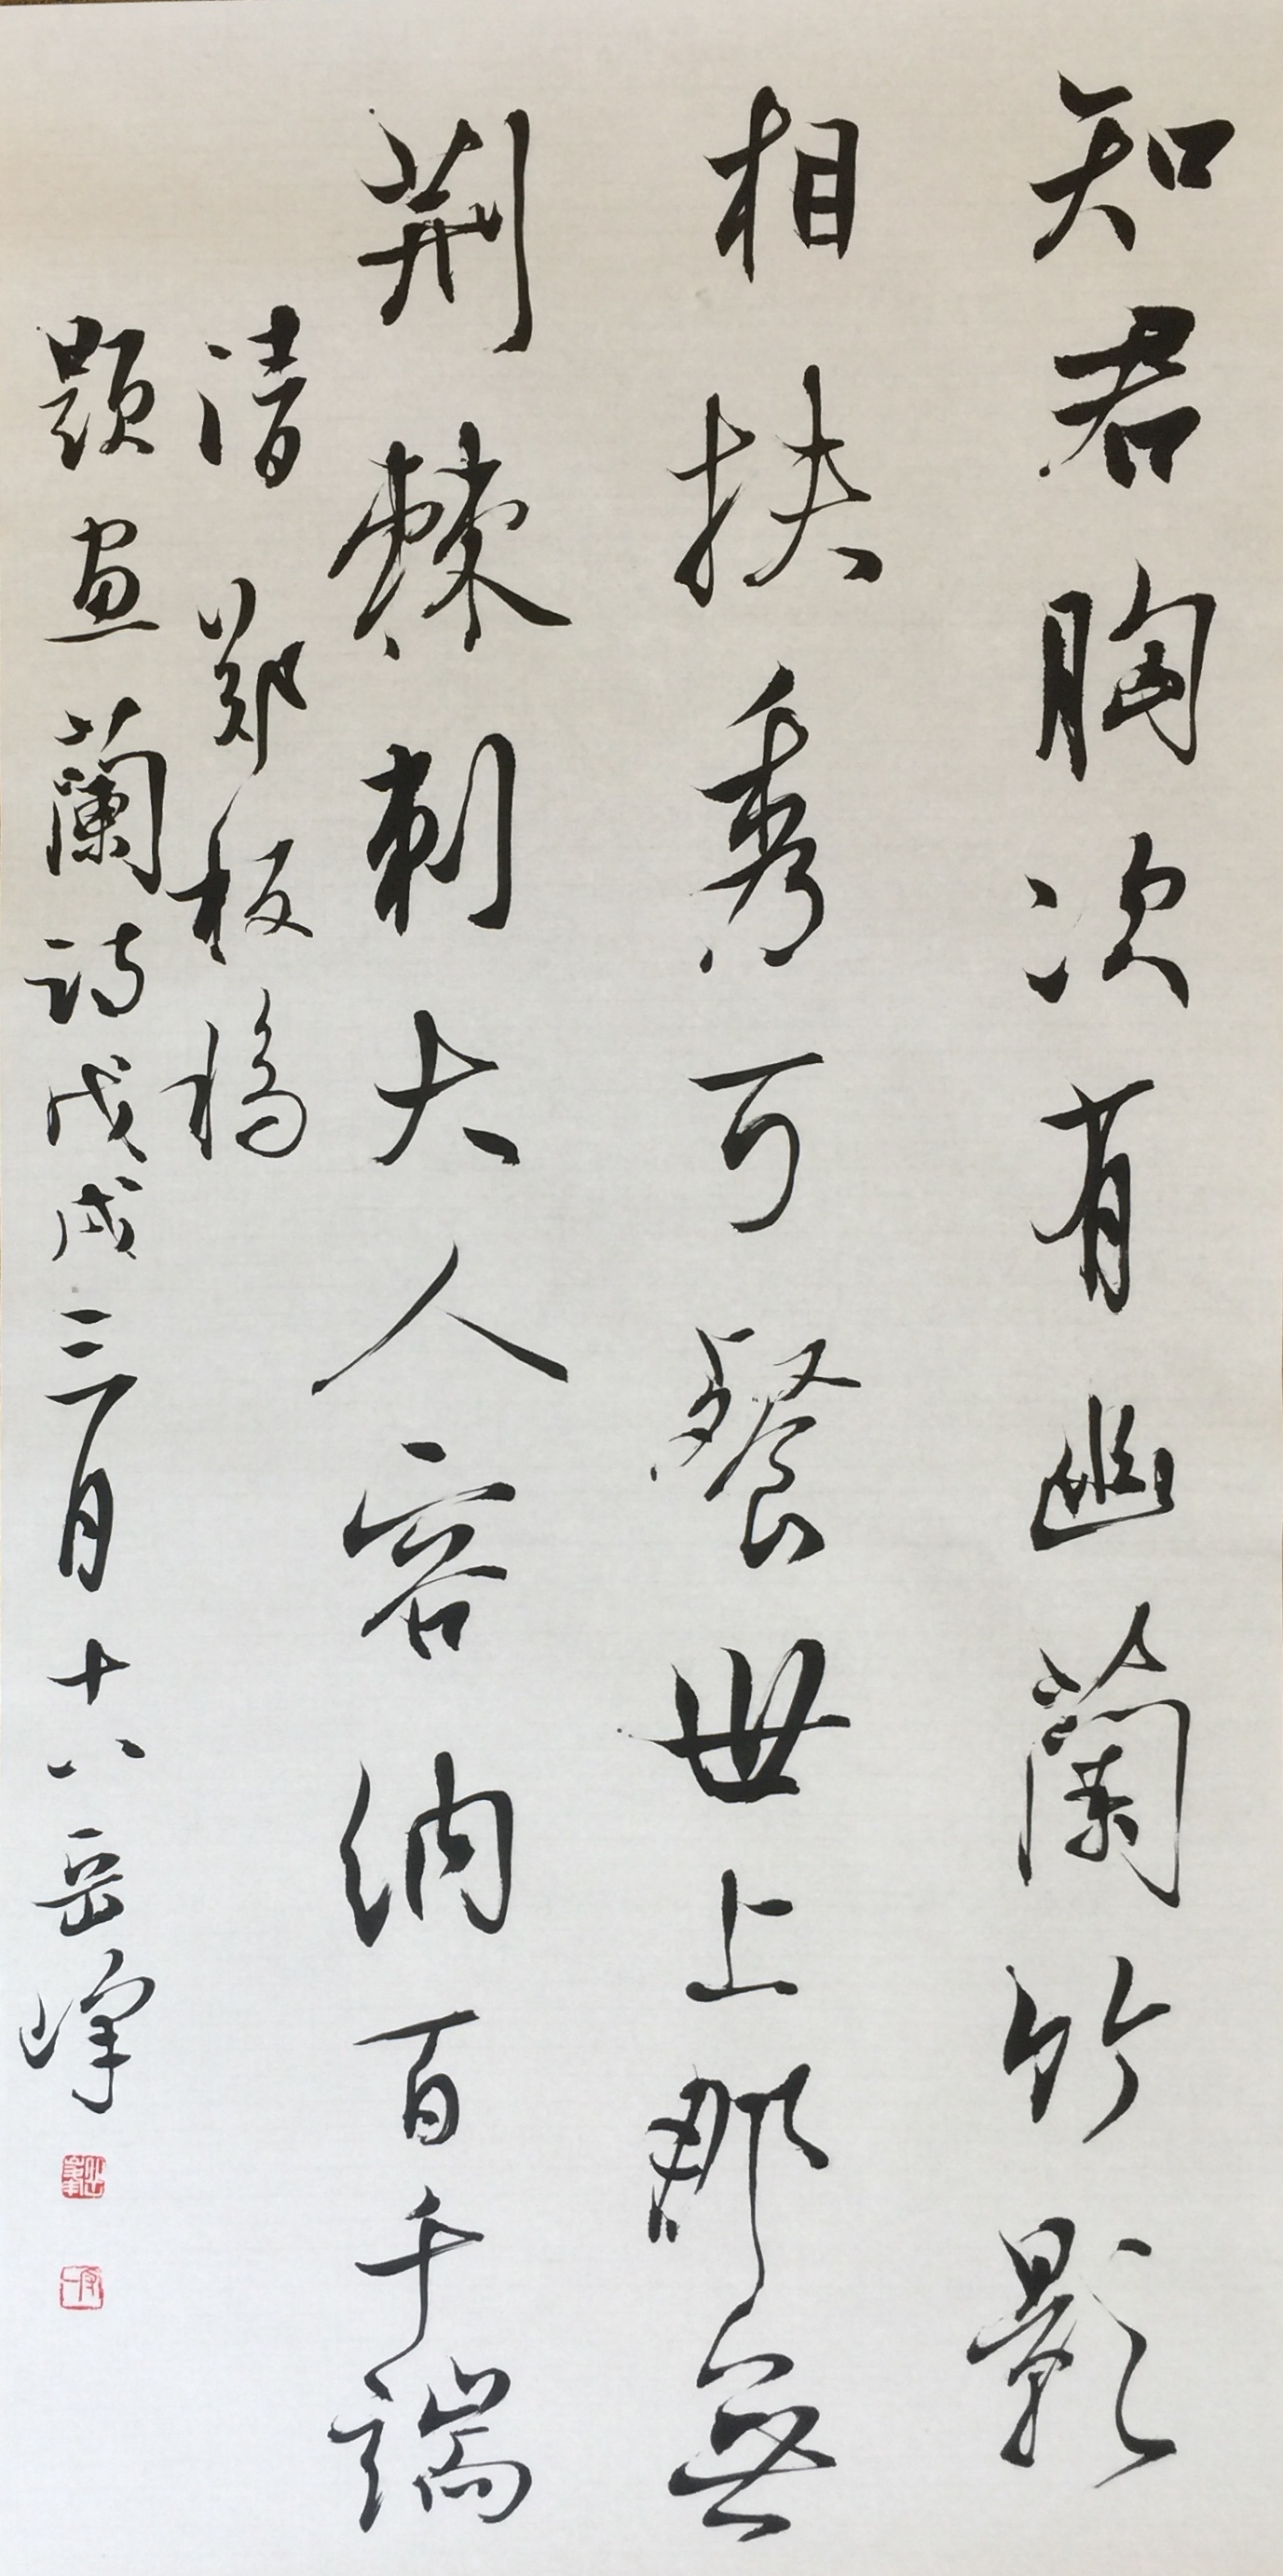 知君胸次有幽蘭竹影
相扶秀可餐世上那無
荆棘刺大人容納百千端
清鄭板橋
題畫蘭詩戊戌三月十八岳峰